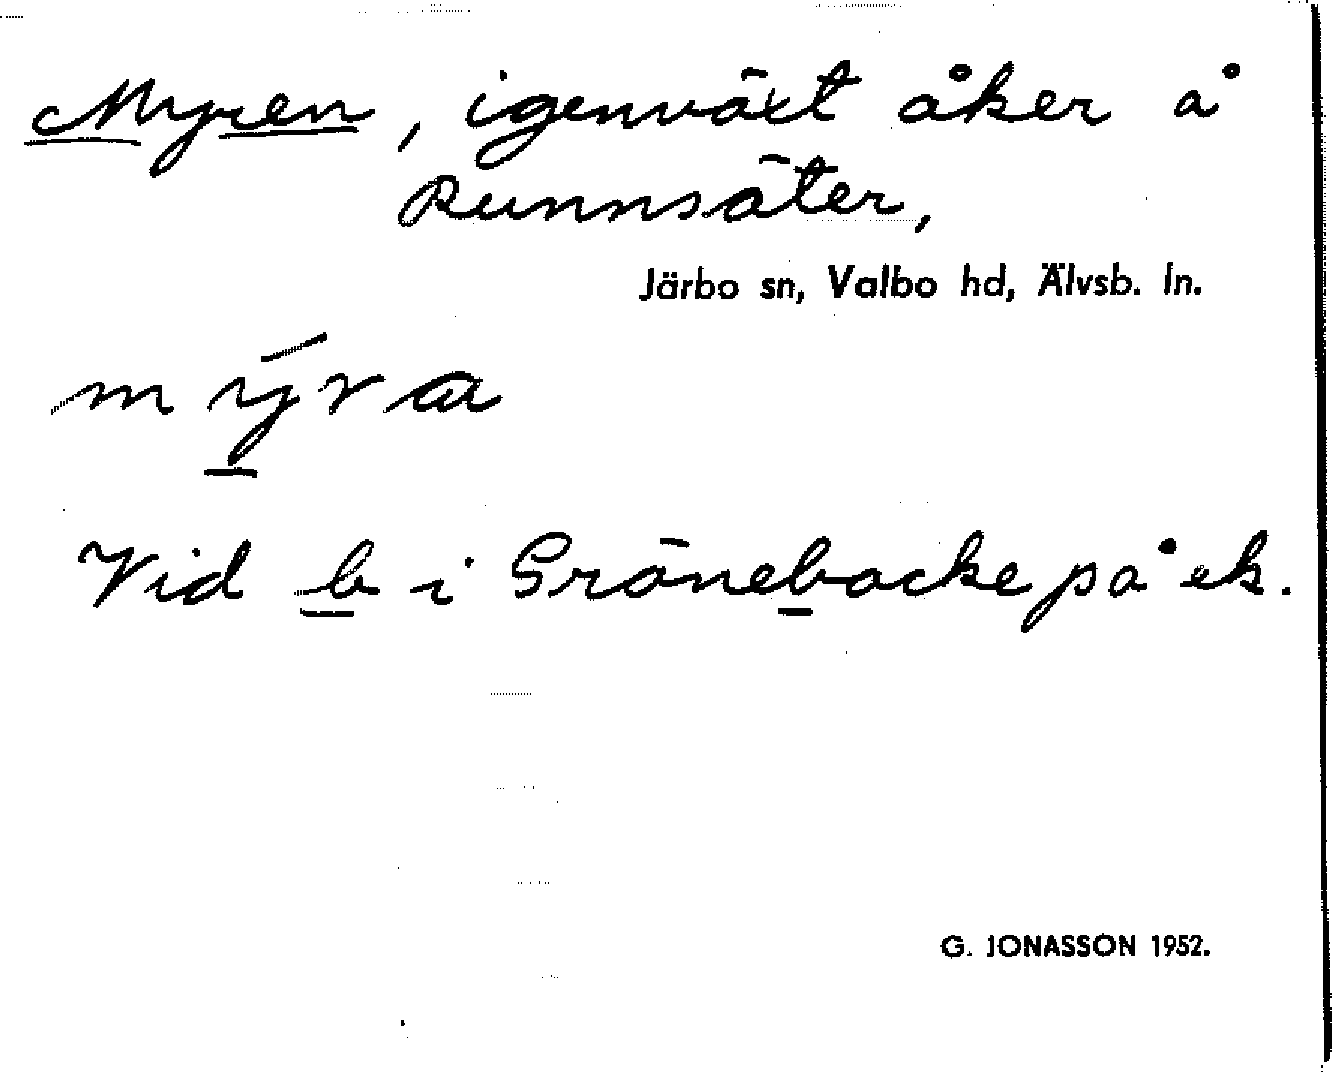 Myren, igenväxt åker å
Runnsäter,
Järbo sn, Valbo hd, Älvsb. ln.
mýra
Vid b i Gröneback på ek.
G. JONASSON 1952.